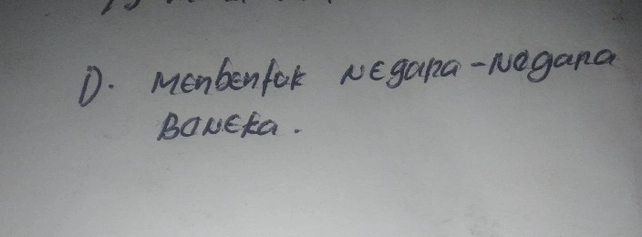 D. Menbentuk Negara-Negara
Boneka.